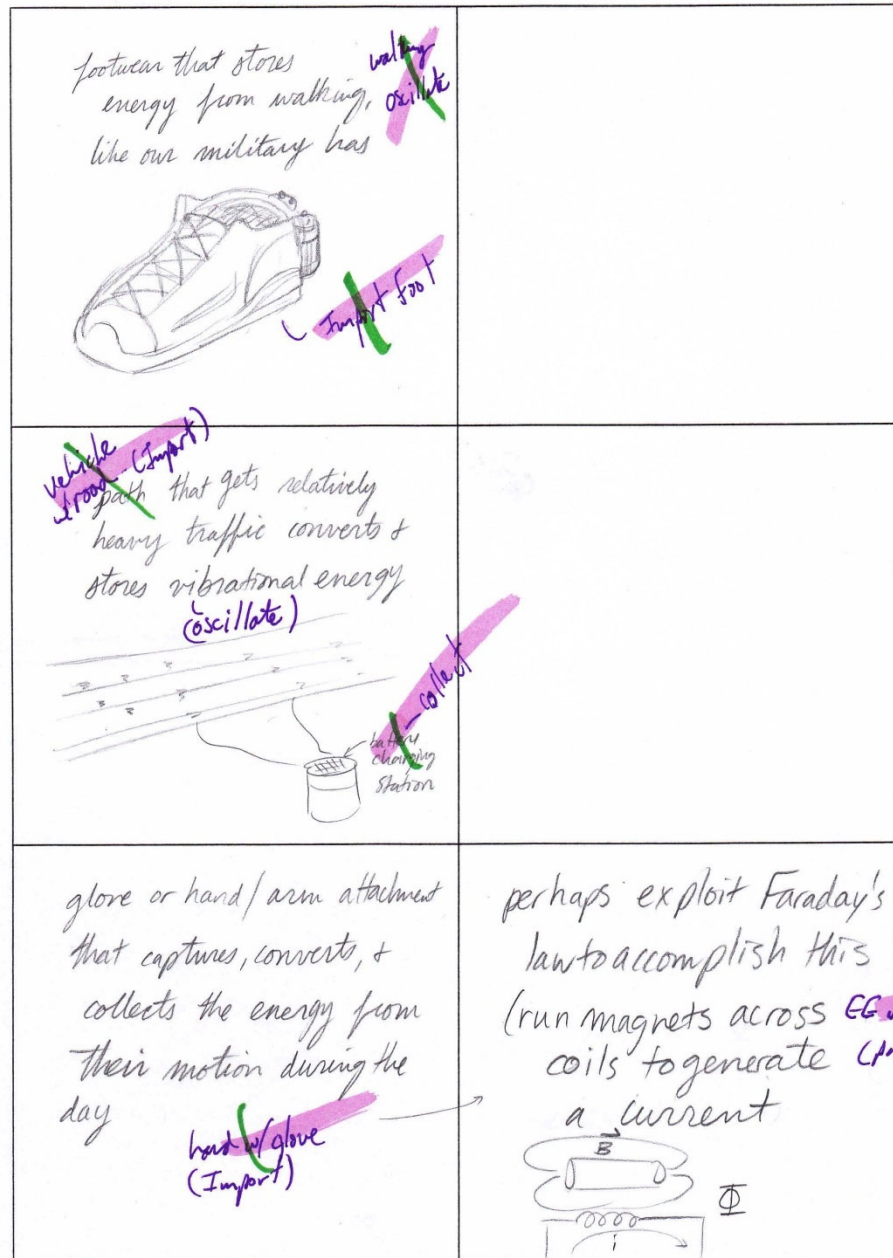 footwear that stores
energy from walking,
like our military has
walking
oscillate
Import Foot
vehicle
road (Import)
path that gets relatively
heavy traffic converts &
stores vibrational energy
(oscillate)
collect
battery
charging
station
glove or hand/arm attachment
that captures, converts, &
collects the energy from
their motion during the
day
hand w/ glove
(Import)
perhaps exploit Faraday's
law to accomplish this
(run magnets across EG
coils to generate
a current
B
Φ
i